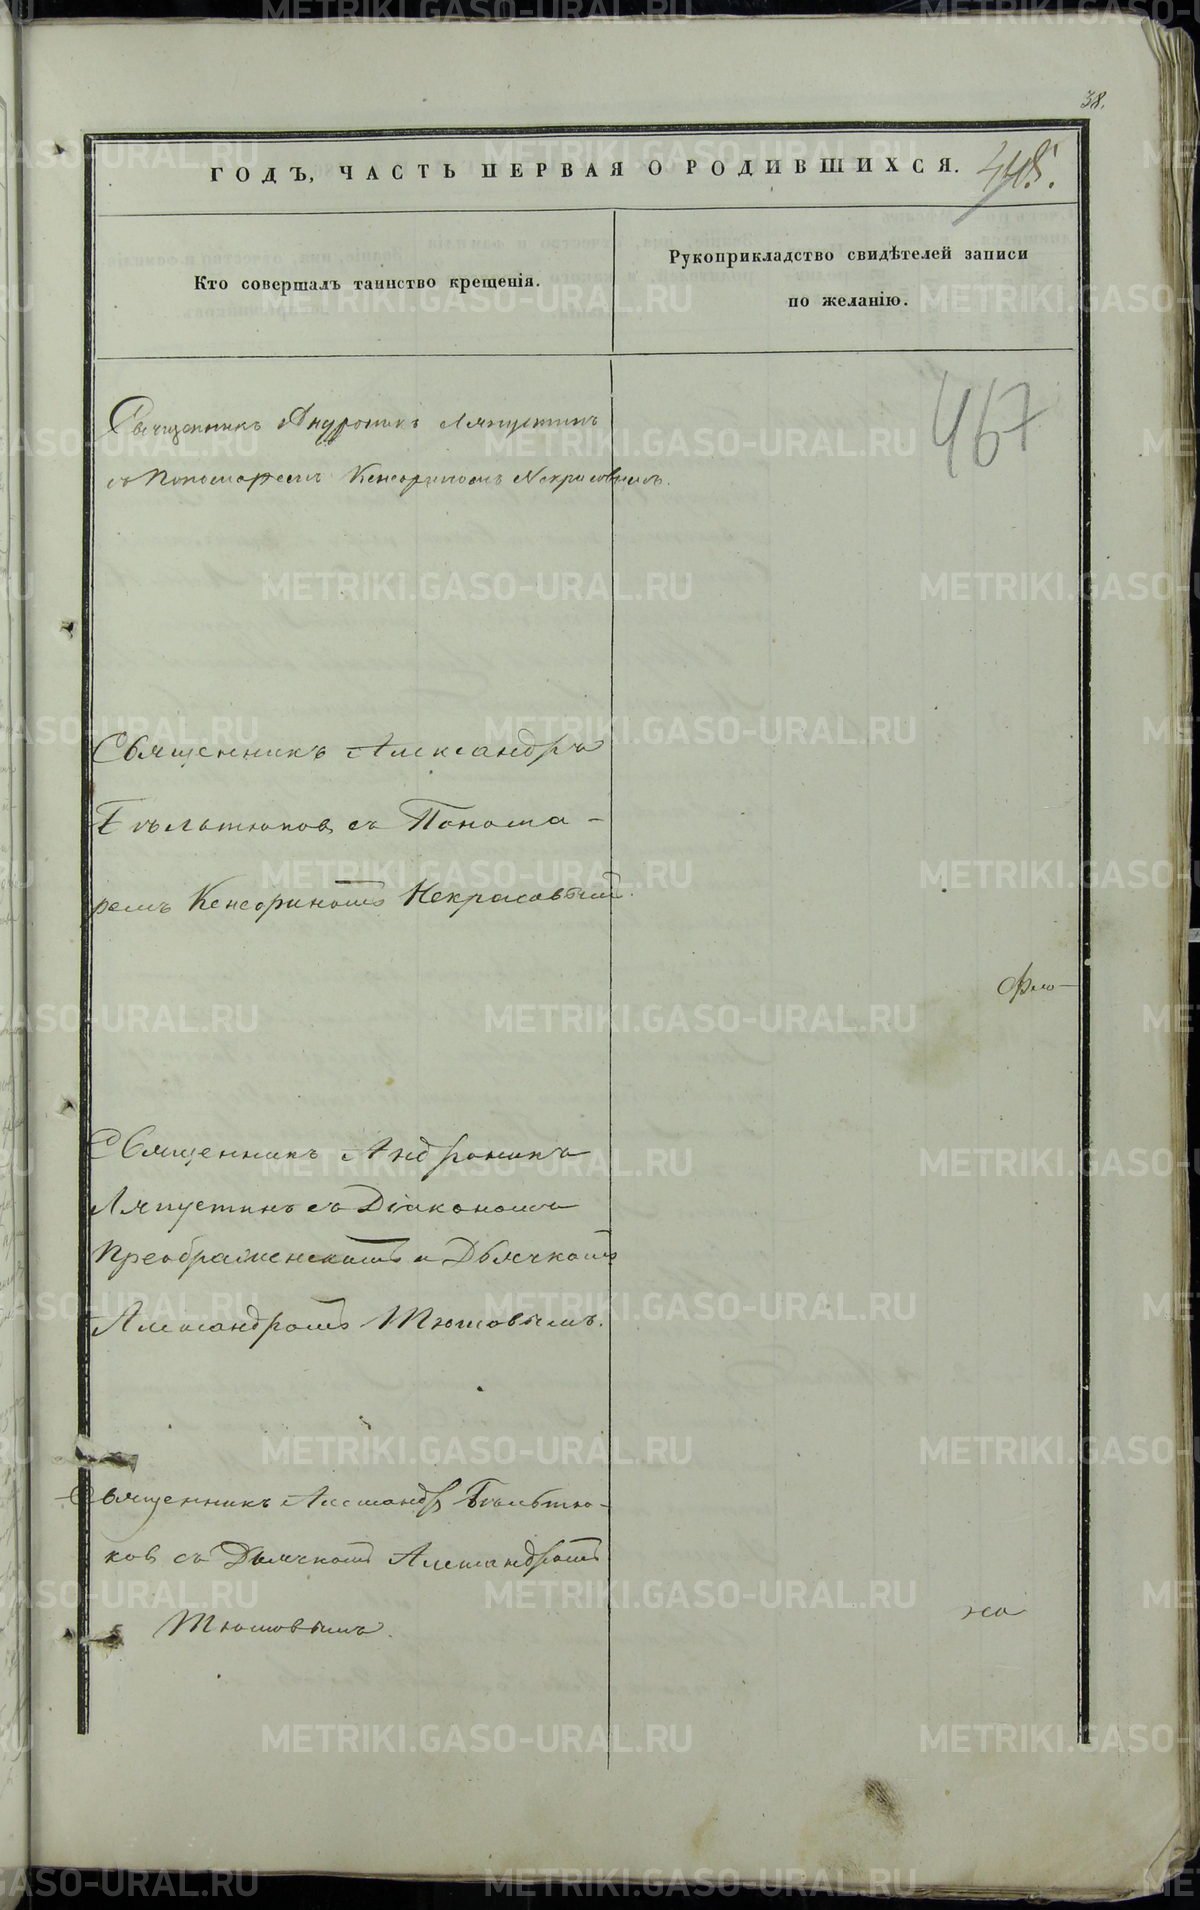 38.
ГОДЪ, ЧАСТЬ ПЕРВАЯ О РОДИВШИХСЯ.
Кто совершалъ таинство крещенія.
Рукоприкладство свидѣтелей записи
по желанію.
467
Священникъ Андроникъ Ляпустинъ
съ Пономаремъ Кенсориномъ Некрасовымъ.
Священникъ Александръ
Бѣльтюковъ съ Понома-
ремъ Кенсориномъ Некрасовымъ.
Священникъ Андроникъ
Ляпустинъ съ Діакономъ
Преображенскимъ и Дьячкомъ
Александромъ Тютовымъ.
Священникъ Александръ Бѣльтю-
ковъ съ Дьячкомъ Александромъ
Тютовымъ.
METRIKI.GASO-URAL.RU